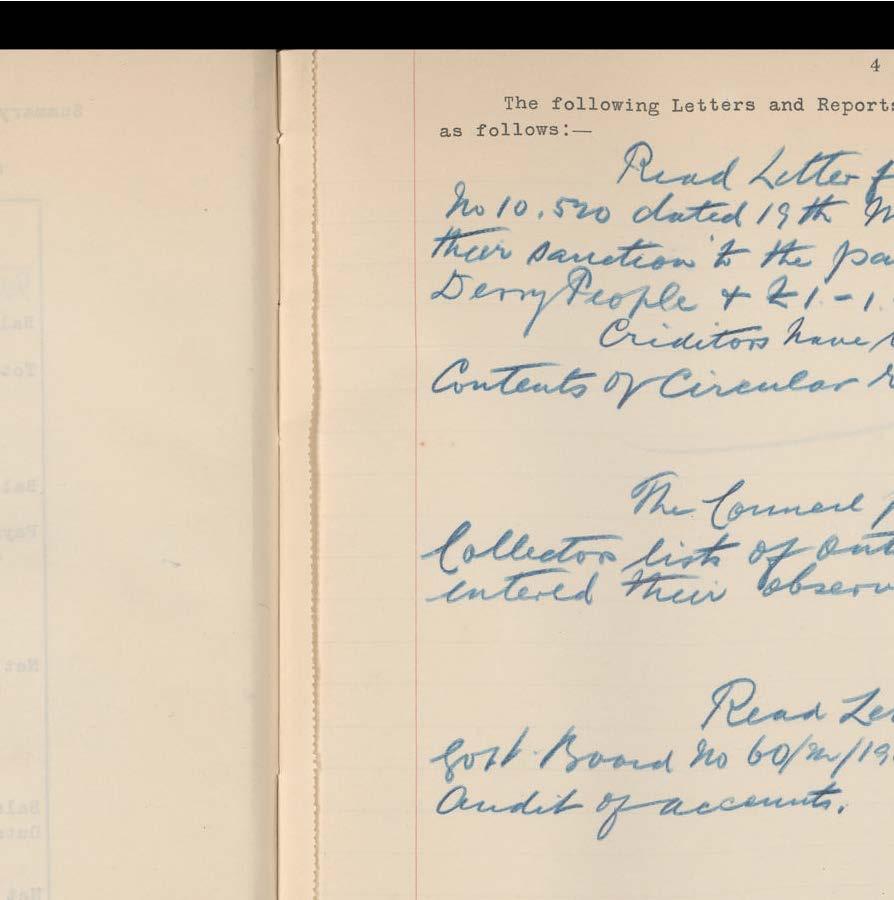 4
The following Letters and Reports
as follows:—
Read Letter f
No 10.520 dated 19th M
their sanction to the pa
Derry People & £1-1.
Creditors have
Contents of Circular
The Council p
Collectors lists of Out
entered their observ
Read Let
Govt. Board No 60/M/19
Audit of accounts.